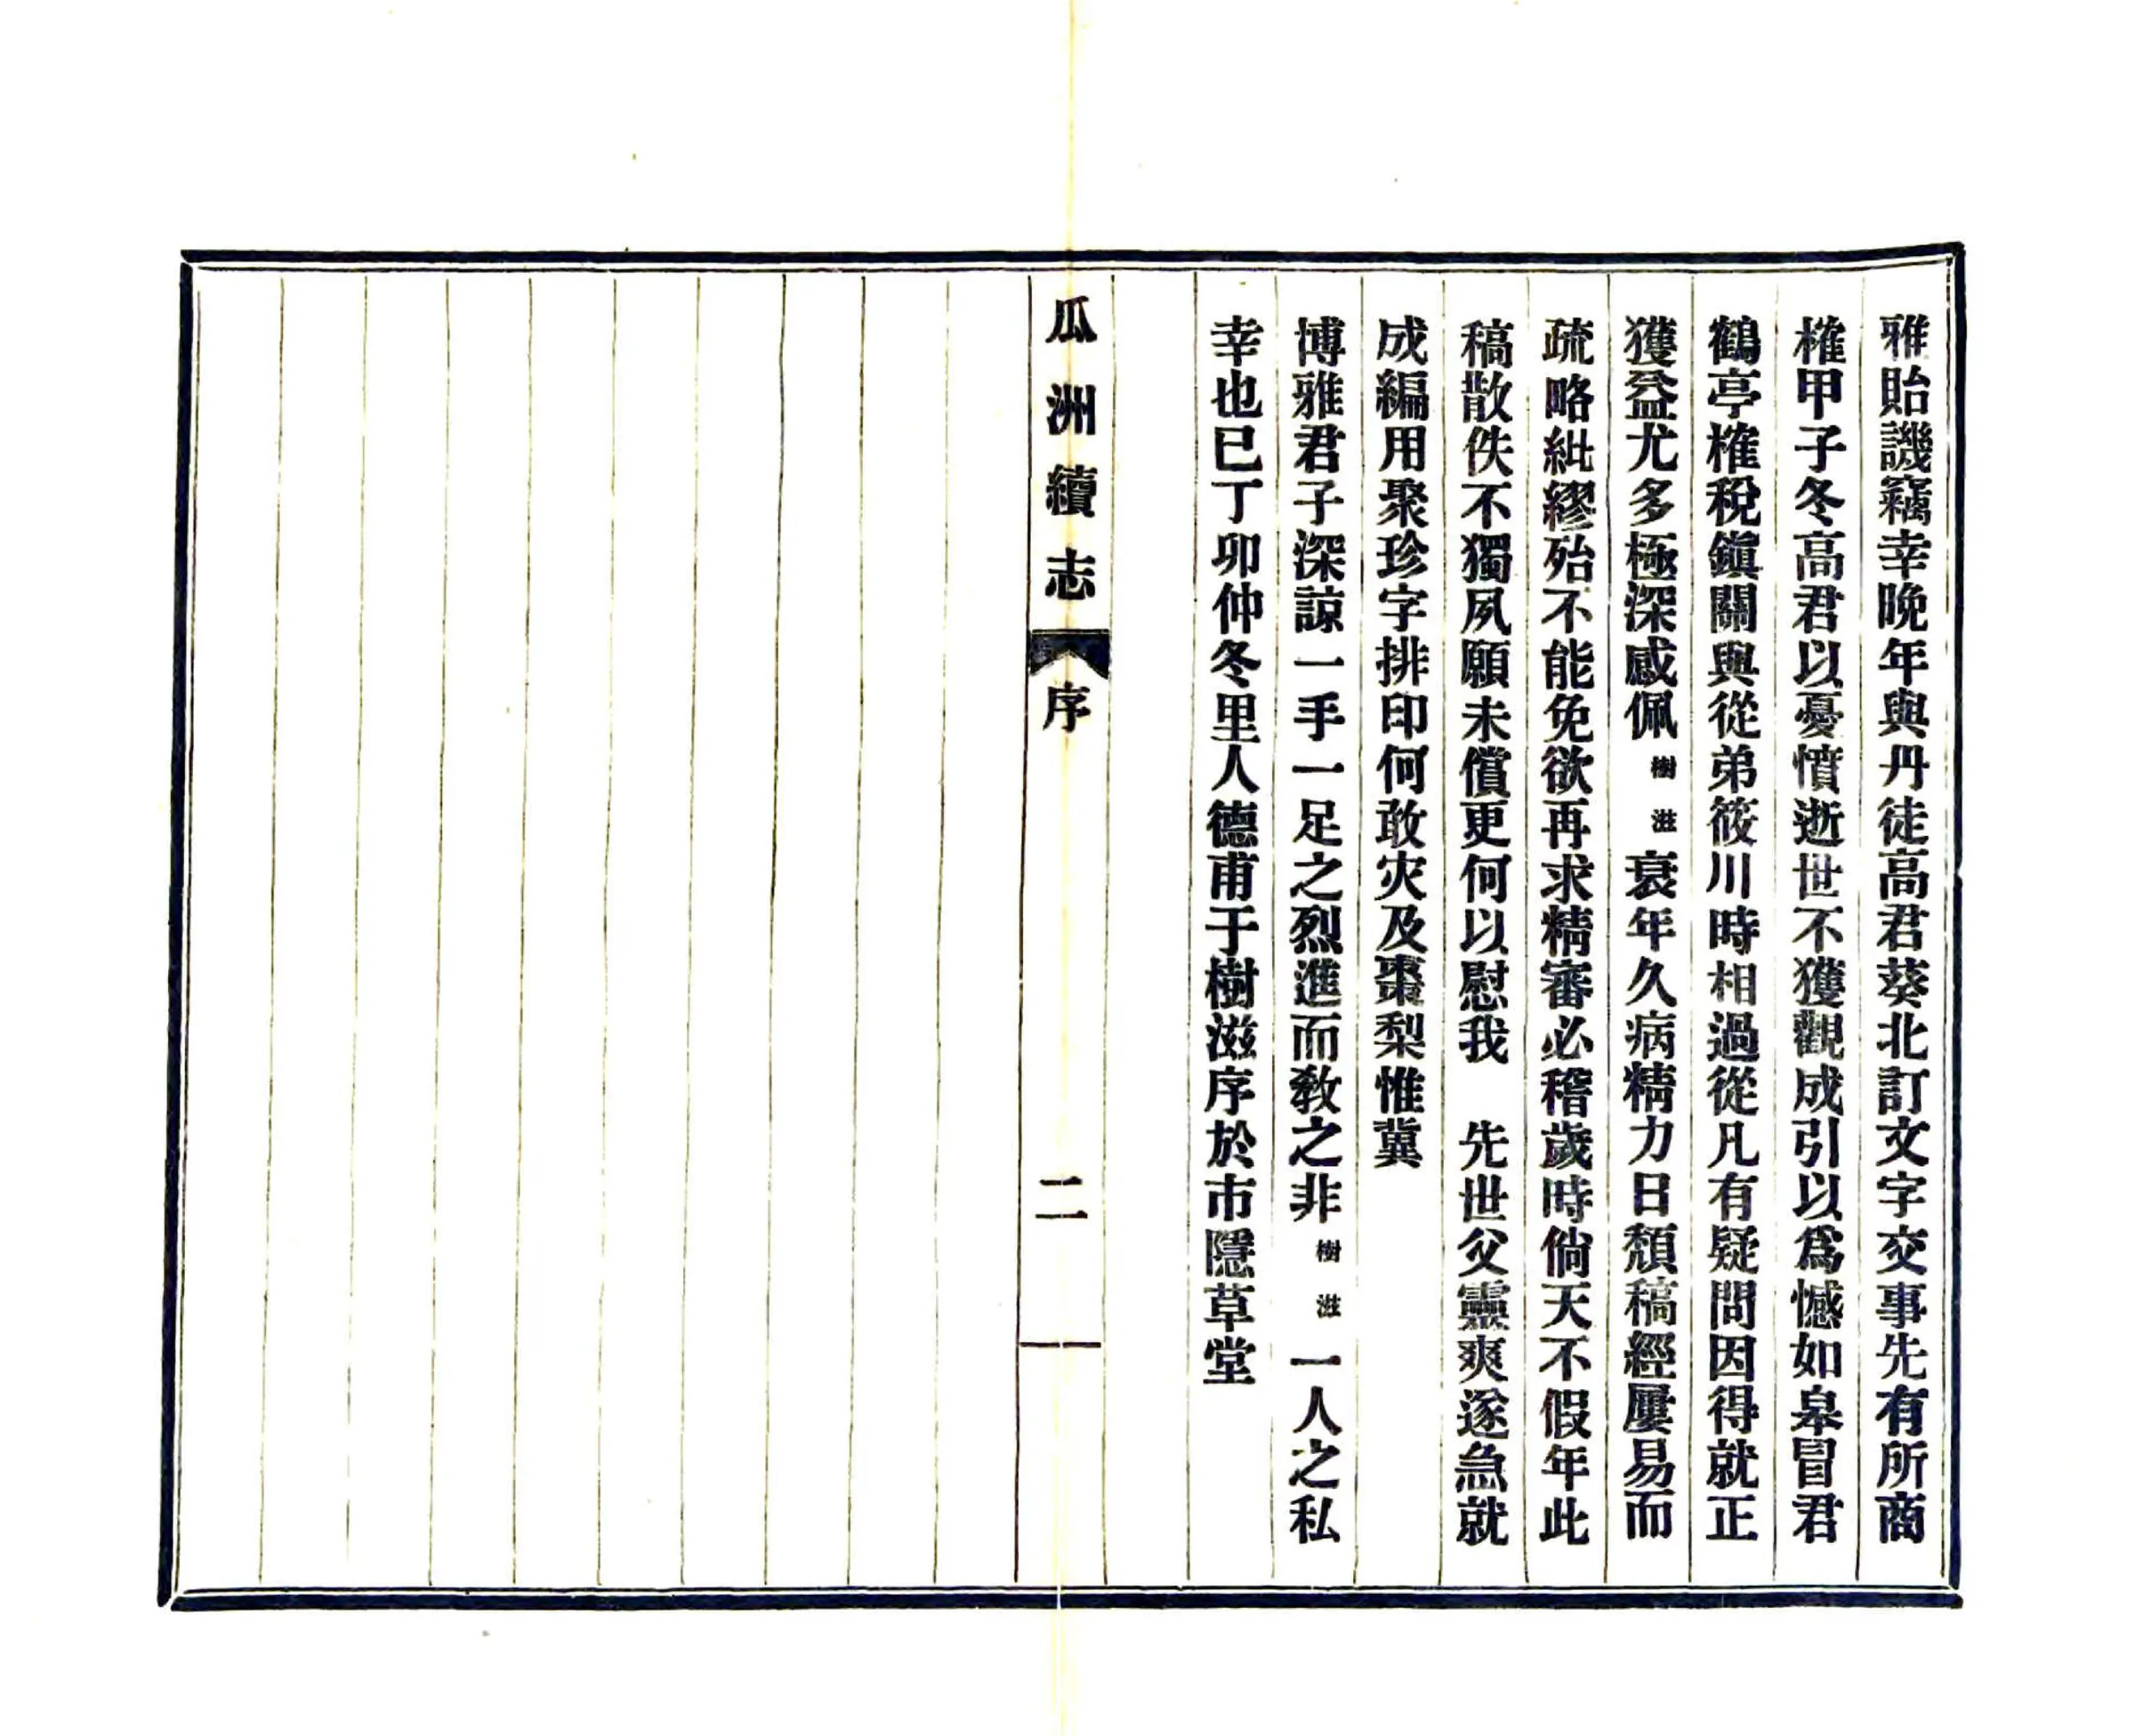 雅貽譏竊幸晚年與丹徒高君葵北訂文字交事先有所商
榷甲子冬高君以憂憤逝世不獲觀成引以爲憾如皋冒君
鶴亭榷稅鎭關與從弟筱川時相過從凡有疑問因得就正
獲益尤多極深感佩樹滋衰年久病精力日頹稿經屢易而
疏略紕繆殆不能免欲再求精審必稽歲時倘天不假年此
稿散佚不獨夙願未償更何以慰我　先世父靈爽遂急就
成編用聚珍字排印何敢灾及棗梨惟冀
博雅君子深諒一手一足之烈進而敎之非樹滋一人之私
幸也已丁卯仲冬里人德甫于樹滋序於市隱草堂
瓜洲續志
序
二